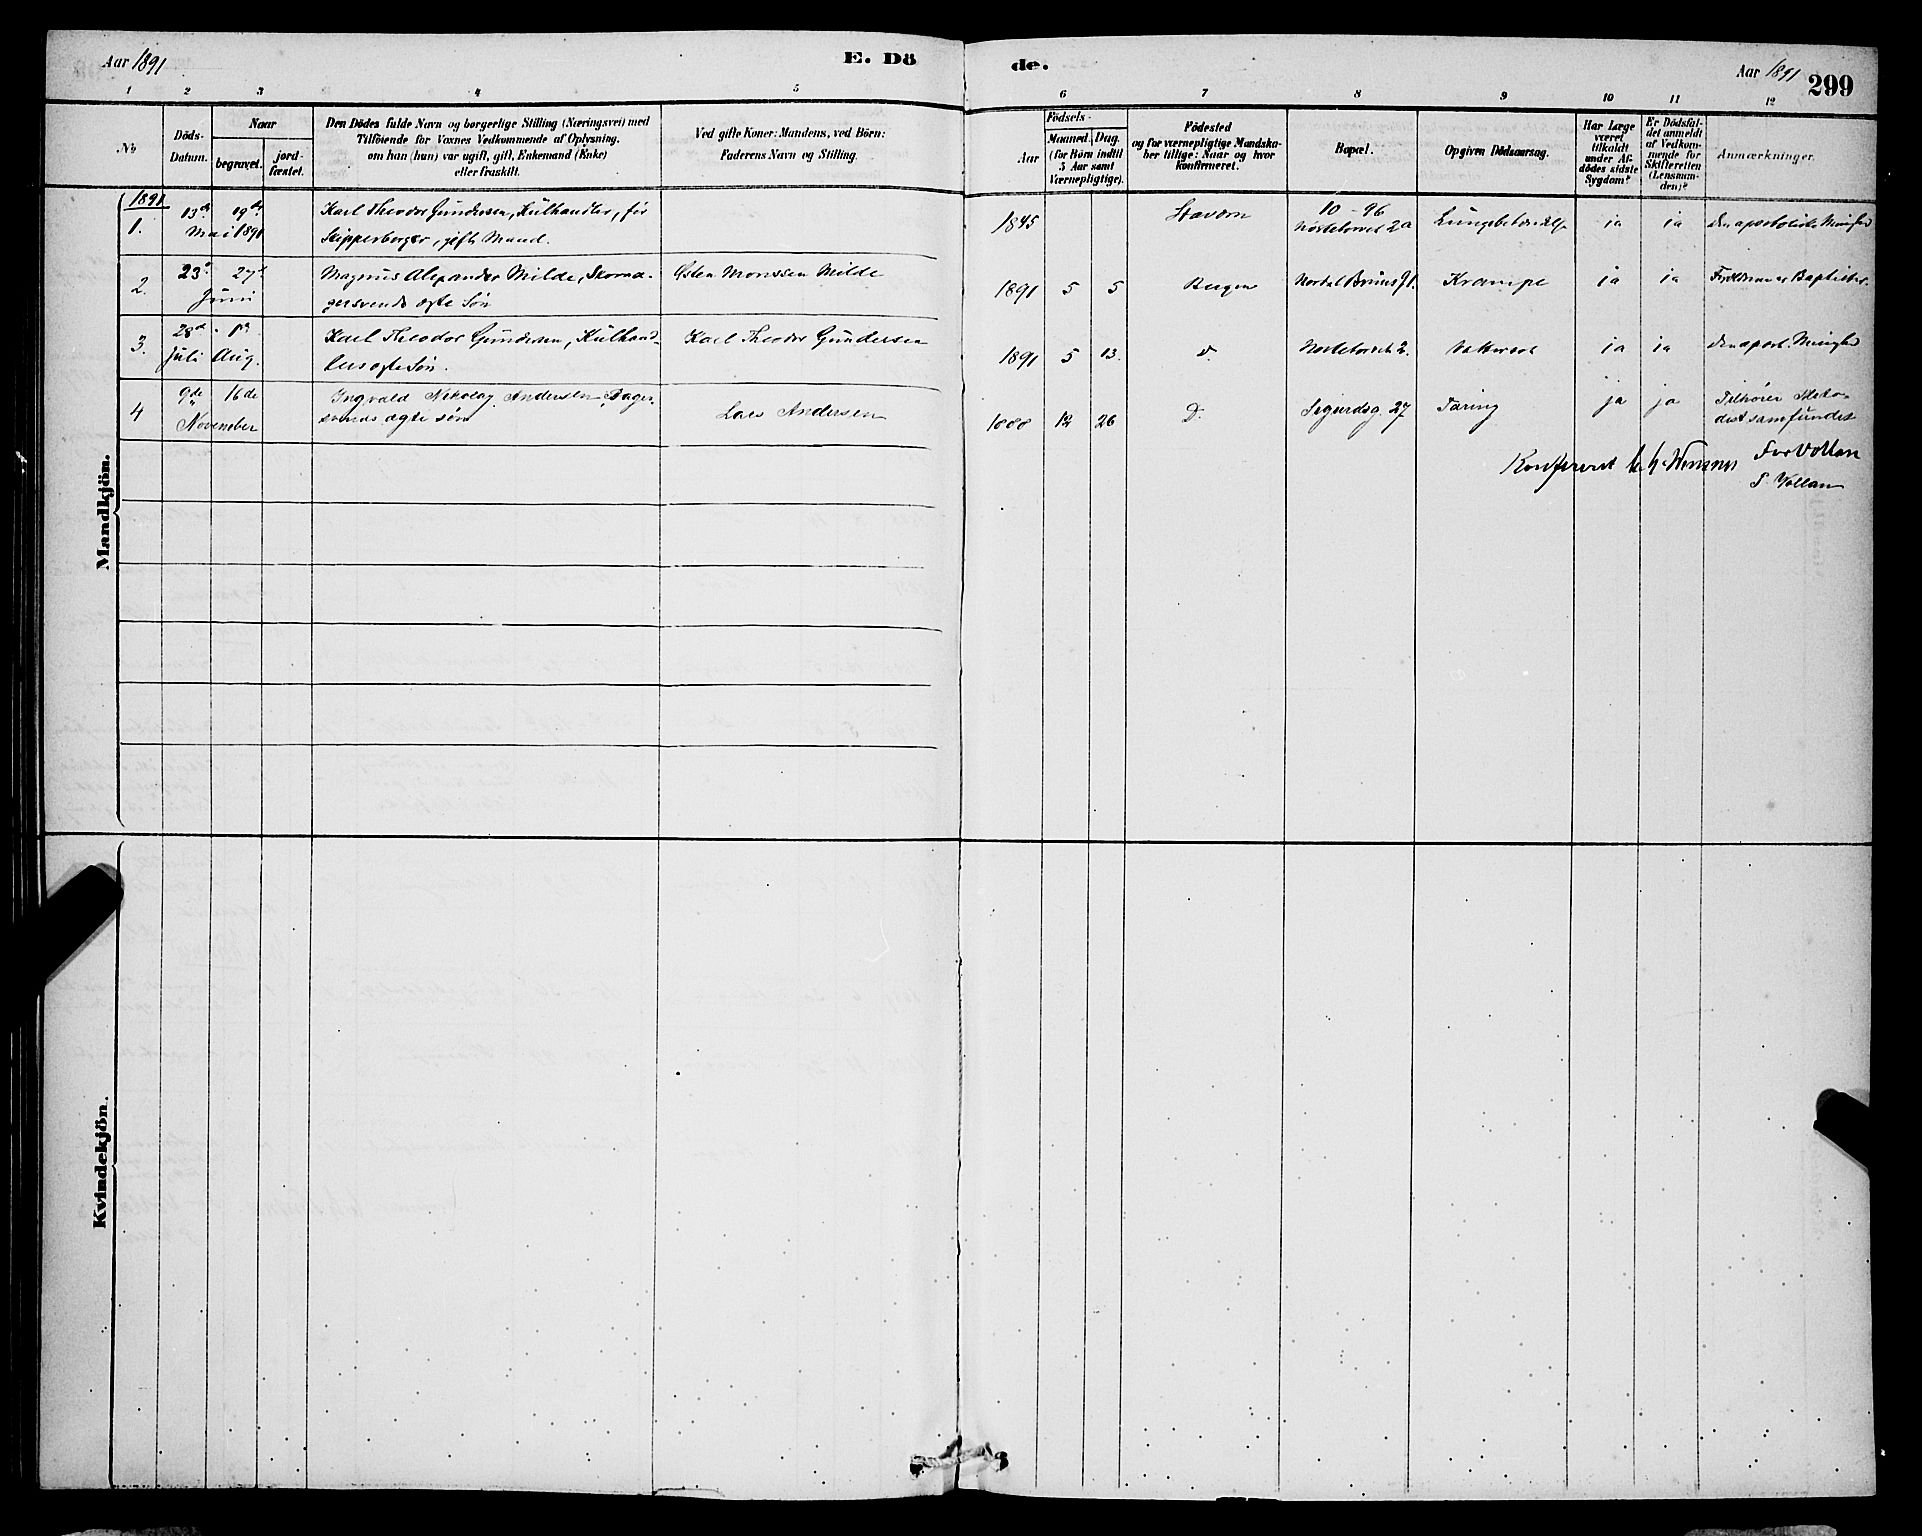 Aar 1891
E. Dö
de.
Aar 1891
299
1 2 3 4 5 6 7 8 9 10 11 12
No
Döds-
Datum.
Naar
begravet.
jord-
fæstet.
Den Dödes fulde Navn og borgerlige Stilling (Næringsvei) med
Tilföiende for Voxnes Vedkommende af Oplysning,
om han (hun) var ugift, gift, Enkemand (Enke)
eller fraskilt.
Ved gifte Koner: Mandens, ved Börn:
Faderens Navn og Stilling.
Födsels-
Aar
Maaned. Dag.
(for Börn indtil
5 Aar samt
Værnepligtige).
Födested
og for værnepligtige Mandska-
ber tillige: Naar og hvor
konfirmeret.
Bopæl.
Opgiven Dödsaarsag.
Har Læge
været
tilkaldt
under Af-
dödes sidste
Sygdom?
Er Dödsfal-
det anmeldt
af Vedkom-
mende for
Skifteretten
(Lensman-
den)?
Anmærkninger.
Mandkjön.
1891
1.
13de 19de
Mai 1891
Karl Theodor Gundersen, Kulhandler, før
Skipperborger, gift Mand.
1845
Stavern
10-96
Nøstetorvet 2a
Lungebetændelse
ja
ja
den apostoliske Menighed
2.
23d 27d
Juni
Magnus Alexander Milde, Skoma-
gersvends ægte Søn
Østen Monssen Milde
1891 5 5
Bergen
Krampe
ja
ja
Forældrene er Baptister.
3.
28d 1ste
Juli Aug.
Karl Theodor Gundersen, Kulhand-
lers ægte Søn.
Karl Theodor Gundersen
1891 5 13.
D.
Nøstetorvet 2.
Vattersot
ja
ja
den apost. Menighed
4
9de 16de
November
Ingvald Nikolay Andersen, Bager-
svends ægte søn
Lars Andersen
1888 12 26
D.
Sigurdsg. 27
Tæring
ja
ja
Tilhører Meto-
distsamfundet
Konfereret
For Vollan
S. Vollan
Kvindekjön.